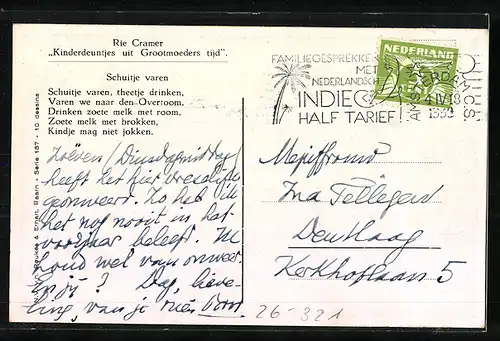 Rie Cramer
„Kinderdeuntjes uit Grootmoeders tijd".
Schuitje varen
Schuitje varen, theetje drinken,
Varen we naar den Overtoom,
Drinken zoete melk met room,
Zoete melk met brokken,
Kindje mag niet jokken.
FAMILIEGESPREKKEN
MET
NEDERLANDSCH
INDIE
HALF TARIEF!
NEDERLAND
AMSTERDAM C.S.
Zoëven (Dinsdagmiddag)
heeft het hier vreselijk
geonweert. Zo heb ik
het nog nooit in het
voorjaar beleeft. Ik
houd wel van onweer.
En jij? Dag, lieve-
ling, van je
Mejuffrouw
Ina Tellegen
Den Haag
Kerkhoflaan 5
26-321
Serie 187 - 10 dessins